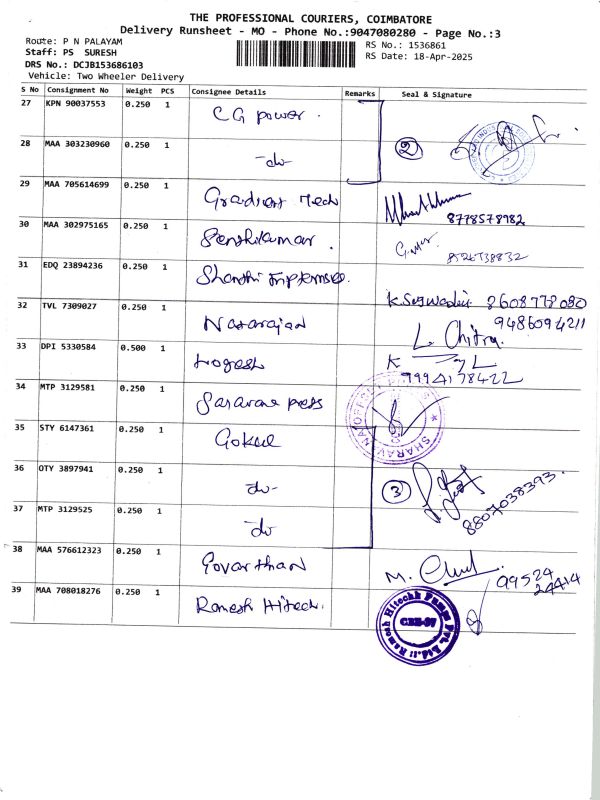 THE PROFESSIONAL COURIERS, COIMBATORE
Delivery Runsheet - MO - Phone No.:9047080280 - Page No.:3
Route: P N PALAYAM
Staff: PS SURESH
DRS No.: DCJB153686103
Vehicle: Two Wheeler Delivery
RS No.: 1536861
RS Date: 18-Apr-2025
S No Consignment No Weight PCS Consignee Details Remarks Seal & Signature
27 KPN 90037553 0.250 1 CG power. 2
28 MAA 303230960 0.250 1 -do-
29 MAA 705614699 0.250 1 Gradient Tech 8778578982
30 MAA 302975165 0.250 1 Senthilkumar. 8526738832
31 EDQ 23894236 0.250 1 Shanthi 8608778080
32 TVL 7309027 0.250 1 Natarajan 9486094211
L. Chitra
33 DPI 5330584 0.500 1 Logesh 9994178422
34 MTP 3129581 0.250 1 Saravana press
35 STY 6147361 0.250 1 Gokul
36 OTY 3897941 0.250 1 -do- 3 8807038393.
37 MTP 3129525 0.250 1 -do-
38 MAA 576612323 0.250 1 Govarthan M. 99524 24414
39 MAA 708018276 0.250 1 Ramesh Hitech.
Ramesh Hitechh Pumps Pvt. Ltd.
CBE-07